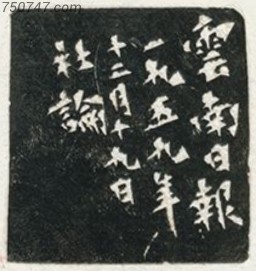 750747.com
雲南日報
一九五九年
十二月十九日
社論